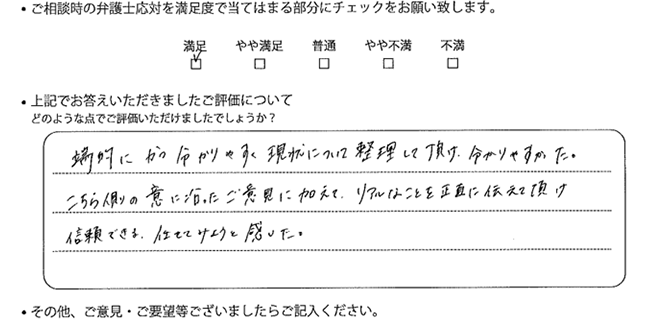 ・ご相談時の弁護士応対を満足度で当てはまる部分にチェックをお願い致します。
満足 やや満足 普通 やや不満 不満
・上記でお答えいただきましたご評価について
どのような点でご評価いただけましたでしょうか？
端的に かつ 分かりやすく 現状について 整理して頂け、分かりやすかった。
こちら側の意に沿ったご意見に加えて、リアルなことを正直に伝えて頂け
信頼できる、任せてみようと感じた。
・その他、ご意見・ご要望等ございましたらご記入ください。